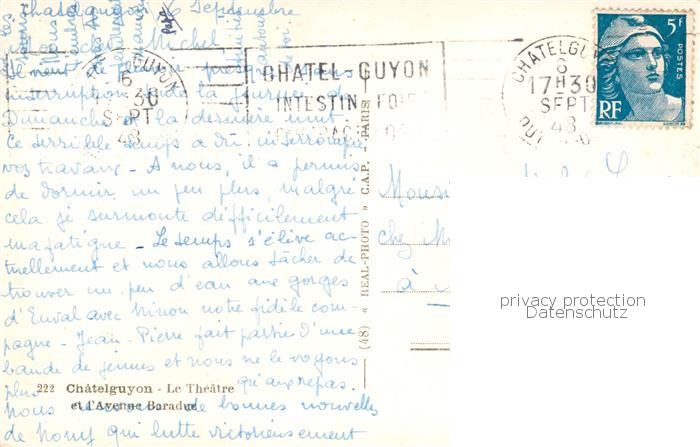 Châtelguyon 6 Septembre
Michel
Il vient de pleuvoir presque sans
interruption de la journée de
Dimanche et la dernière nuit
Ce terrible temps a dû interrompre
vos travaux - A nous, il a permis
de dormir un peu plus, malgré
cela je surmonte difficilement
ma fatigue - Le temps s'élève ac-
tuellement et nous allons tâcher de
trouver un peu d'eau aux gorges
d'Enval avec Ninon notre fidèle com-
pagne - Jean-Pierre fait partie d'une
bande de jeunes et nous ne le voyons
plus qu'aux repas.
Nous de bonnes nouvelles
de qui lutte victorieusement
222 Châtelguyon - Le Théâtre
et l'Avenue Baradue
(48) « REAL-PHOTO » C.A.P. - PARIS
GUYON
6
30
SEPT
48
CHATEL-GUYON
INTESTIN FOIE
CHATELGUYON
6
17H30
SEPT
48
PUY
5f
POSTES
RF
Monsi
chez M
à
privacy protection
Datenschutz